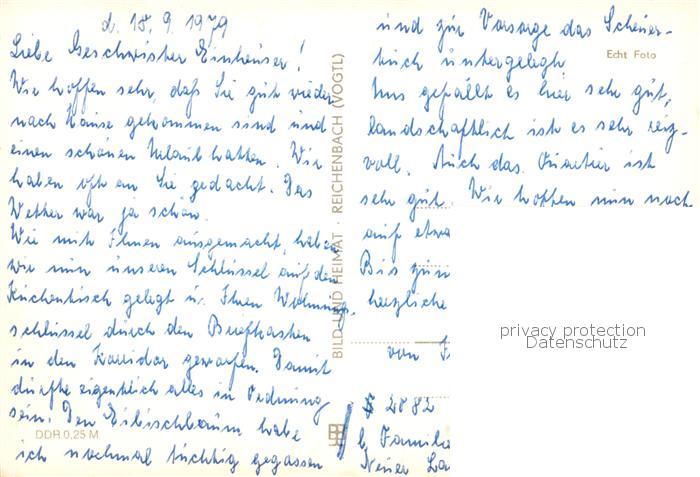 d. 18. 9. 1979
Liebe Geschwister Einhäuser!
Wir hoffen sehr, daß Sie gut wieder
nach Hause gekommen sind und
einen schönen Urlaub hatten. Wir
haben oft an Sie gedacht. Das
Wetter war ja schön.
Wie mit Ihnen ausgemacht, haben
wir nun unseren Schlüssel auf den
Küchentisch gelegt u. Ihren Wohnungs-
schlüssel durch den Briefkasten
in den Korridor geworfen. Damit
dürfte eigentlich alles in Ordnung
sein. Den Eibischbaum habe
ich nochmal tüchtig gegossen
und zur Vorsorge das Scheuer-
tuch untergelegt.
Uns gefällt es hier sehr gut,
landschaftlich ist es sehr reiz-
voll. Auch das Quartier ist
sehr gut. Wir hoffen nun noch
auf etwa
Bis zum
herzliche
von F
2882
b. Familie
Neuer La
Echt Foto
BILD UND HEIMAT · REICHENBACH (VOGTL)
DDR 0,25 M
privacy protection
Datenschutz